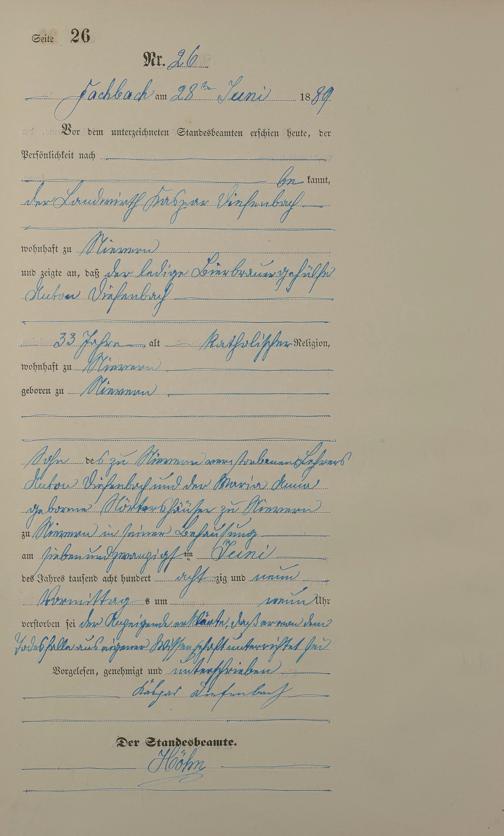 Seite 26
Nr. 26
Fachbach am 28ten Juni 1889
Vor dem unterzeichneten Standesbeamten erschien heute, der
Persönlichkeit nach
be kannt,
der Landwirth Kaspar Diefenbach
wohnhaft zu Nievern
und zeigte an, daß der ledige Bierbrauergehülfe
Anton Diefenbach
33 Jahre alt katholischer Religion,
wohnhaft zu Nievern
geboren zu Nievern
Sohn des zu Nievern verstorbenen Lehrers
Anton Diefenbach und der Maria Anna
geborne zu Nievern
zu Nievern in seiner Behausung
am siebenundzwanzigsten Juni
des Jahres tausend acht hundert acht zig und neun
Vormittags um neun Uhr
verstorben sei der Anzeigende erklärte, daß er von dem
Todesfalle aus eigener Wissenschaft unterrichtet sei
Vorgelesen, genehmigt und unterschrieben
Kaspar Diefenbach
Der Standesbeamte.
Höhn